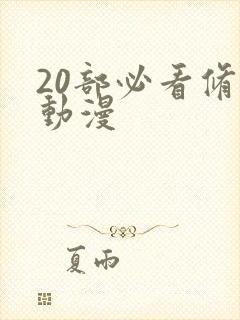 20部必看脩
動漫
夏雨